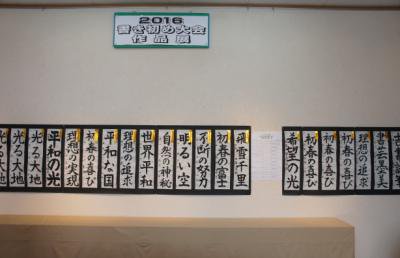 2016
書き初め大会
作品展
光る大地
光る大地
平和の光
理想の実現
初春の喜び
平和な国
理想の追求
世界平和
自然の神秘
明るい空
不断の努力
初春の富士
飛雪千里
希望の光
初春の喜び
初春の喜び
初春の喜び
理想の追求